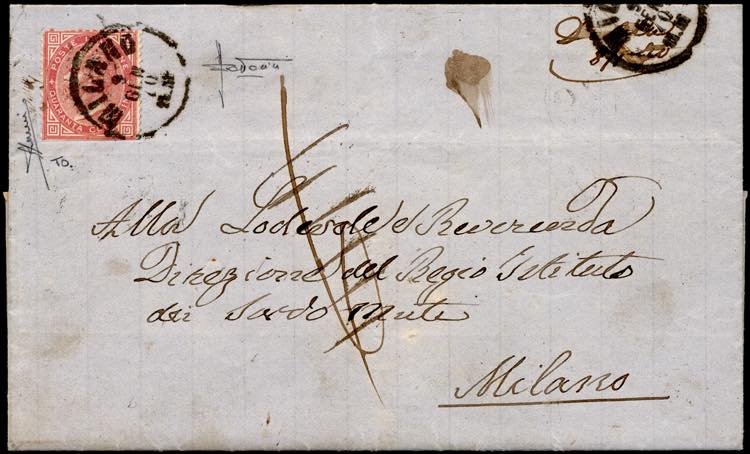 POSTE
QUARANTA C
MILANO
9
GEN
10
M
MILANO
10
TO.
Alla Lodevole e Reverenda
Direzione del Regio Istituto
dei Sordo Muti
Milano